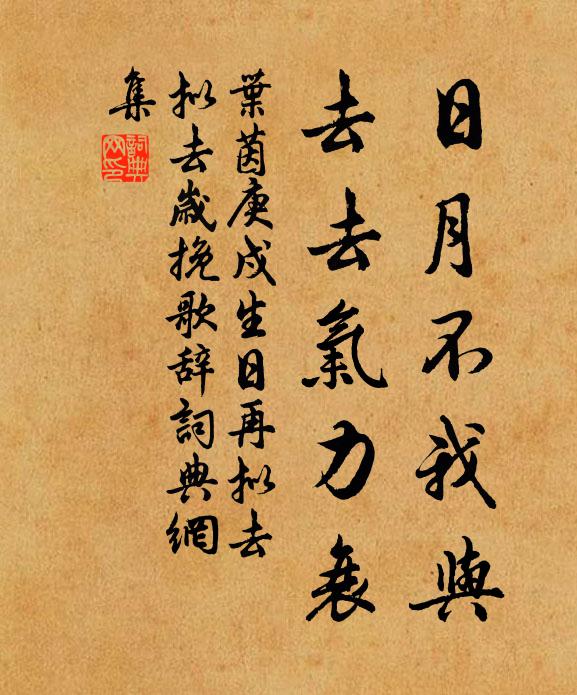 日月不我與
去去氣力衰
葉茵庚戌生日再拟去
拟去歲挽歌辞詞典網
集
詞典網印